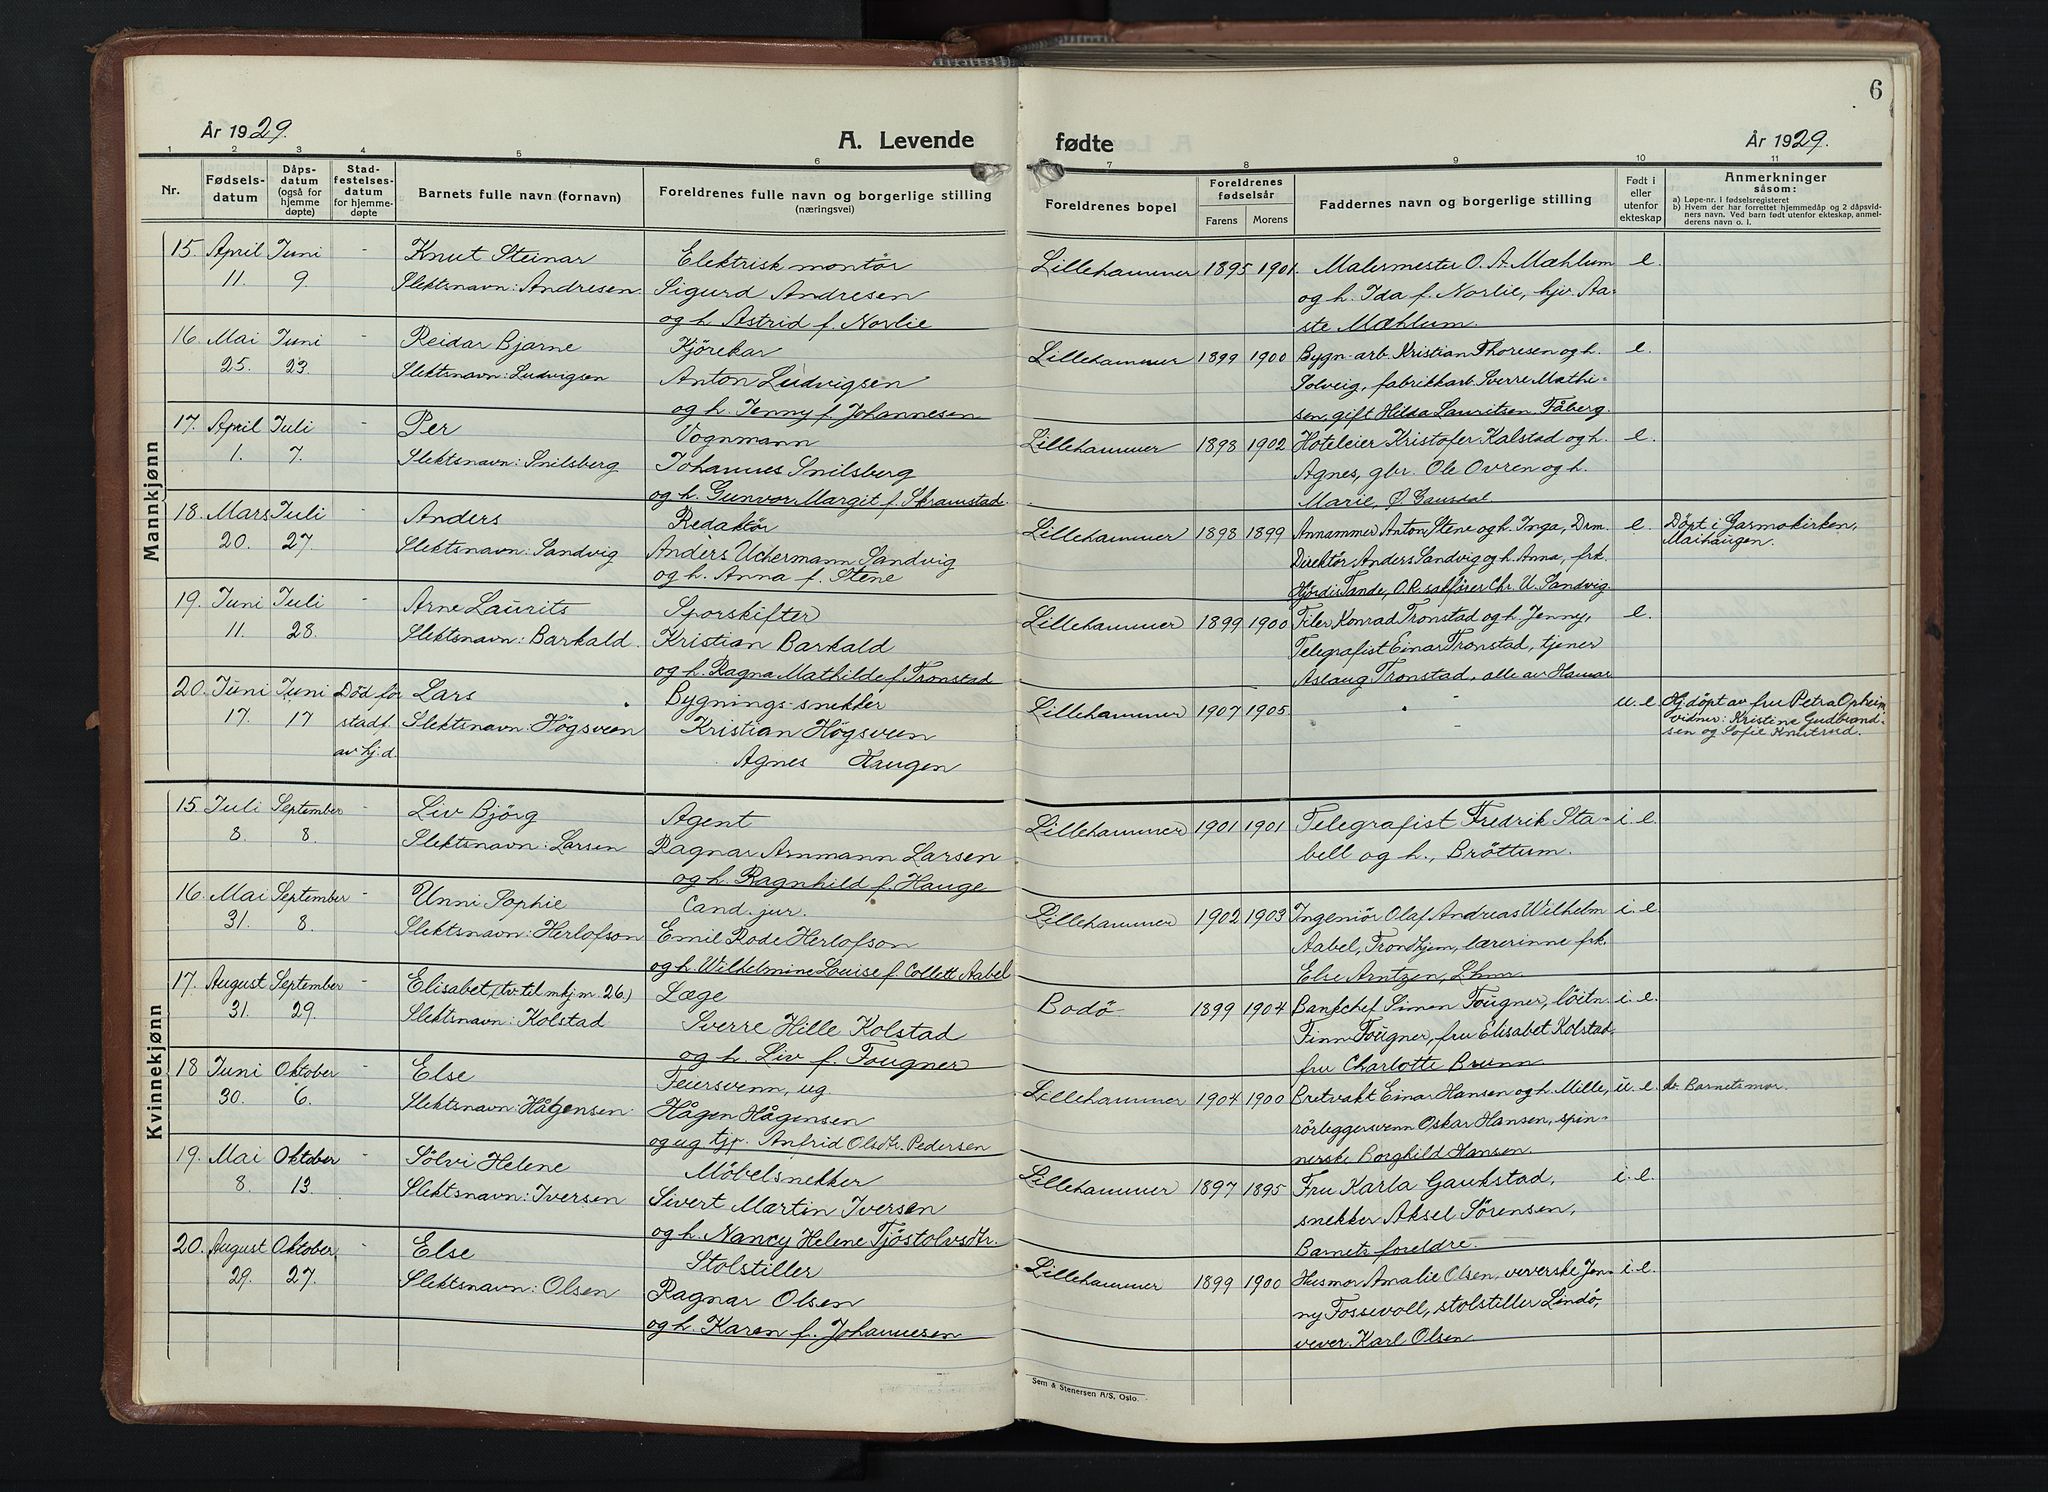 6
År 1929.
A. Levende
fødte
År 1929.
1 2 3 4 5 6 7 8 9 10 11
Nr.
Fødsels-
datum
Dåps-
datum
(også for
hjemme
døpte)
Stad-
festelses-
datum
for hjemme-
døpte
Barnets fulle navn (fornavn)
Foreldrenes fulle navn og borgerlige stilling
(næringsvei)
Foreldrenes bopel
Foreldrenes
fødselsår
Farens Morens
Faddernes navn og borgerlige stilling
Født i
eller
utenfor
ekteskap
Anmerkninger
såsom:
a) Løpe-nr. i fødselsregisteret
b) Hvem der har forrettet hjemmedåp og 2 dåpsvid-
ners navn. Ved barn født utenfor ekteskap, anmel-
derens navn o. l.
Mannkjønn
15. April Juni - Knut Steinar Elektrisk montör Lillehammer 1895 1901. Malermester O. A. Mæhlum e.
11. 9 Slektsnavn: Andresen. Sigurd Andresen og h. Ida f. Norlie, hjv. Aa-
og h. Astrid f. Norlie ste Mæhlum.
16. Mai Juni - Reidar Bjarne Kjörekar Lillehammer 1899 1900 Bygn. arb. Kristian Thoresen og h. e.
25. 23. Slektsnavn: Ludvigsen Anton Ludvigsen Solveig, fabrikkarb. Sverre Mathi-
og h. Jenny f. Johannesen sen, gift Hilda Lauritsen. Fåberg.
17. April Juli - Per Vognmann Lillehammer 1898 1902 Hoteleier Kristofer Kalstad og h. e.
1. 7. Slektsnavn: Snilsberg Johannes Snilsberg Agnes, gbr. Ole Ovren og h.
og h. Gunvor Margit f. Skramstad. Marie, Ø. Gausdal
18. Mars Juli - Anders Redaktör Lillehammer 1898 1899 Annammer Anton Stene og h. Inga, Drm. e. Döpt i Garmokirken,
20. 27. Slektsnavn: Sandvig Anders Uchermann Sandvig Direktör Anders Sandvig og h. Anna, frk. Maihaugen.
og h. Anna f. Stene Hjördis Tande, O.R. sakförer Chr. U. Sandvig.
19. Juni Juli - Arne Laurits Sporskifter Lillehammer 1899 1900 Filer Konrad Tronstad og h. Jenny, e.
11. 28. Slektsnavn: Barkald. Kristian Barkald Telegrafist Einar Tronstad, tjener
og h. Ragna Mathilde f. Tronstad Aslaug Tronstad, alle av Hamar
20. Juni Juni Död for Lars Bygnings-snekker Lillehammer 1907 1905. - u. e. Hj. döpt av fru Petra Opheim
17. 17 stadf. Slektsnavn: Högsveen Kristian Högsveen vidner: Kristine Gudbrand-
av hj. d. Agnes Haugen sen og Sofie Knutrud.
Kvinnekjønn
15. Juli September - Liv Björg Agent Lillehammer 1901 1901 Telegrafist Fredrik Sta- i. e.
8. 8. Slektsnavn: Larsen Ragnar Arnmann Larsen bell og h., Bröttum.
og h. Ragnhild f. Hauge
16. Mai September - Unni Sophie Cand. jur. Lillehammer 1902 1903 Ingeniör Olaf Andreas Wilhelm i. e.
31. 8. Slektsnavn: Herlofson Emil Rode Herlofson Aabel, Trondhjem, lærerinne frk.
og h. Wilhelmine Louise f. Collett Aabel Else Arntzen, Lhmr.
17. August September - Elisabet, (tv. til mkj. nr. 26.) Læge Bodö 1899 1904 Bankchef Simen Fougner, löitn. i. e.
31. 29. Slektsnavn: Kolstad Sverre Hille Kolstad Finn Fougner, fru Elisabet Kolstad,
og h. Liv f. Fougner fru Charlotte Brunn
18 Juni Oktober - Else Feiersvenn, ug. Lillehammer 1904 1900 Bretvakt Einar Hansen og h. Mille, u. e. Barnets mor.
30. 6. Slektsnavn: Hågensen. Hågen Hågensen rörleggersvenn Oskar Hansen, spin-
og ug. tjp. Anfrid Olsdtr. Pedersen nerske Borghild Hansen.
19. Mai Oktober - Sölvi Helene Möbelsnekker Lillehammer 1897 1895 Fru Karla Gaukstad, i. e.
8. 13. Slektsnavn: Iversen Sivert Martin Iversen snekker Aksel Sörensen,
og h. Nancy Helene Tjöstolvsdtr. Barnets foreldre.
20. August Oktober - Else Stolstiller Lillehammer 1899 1900 Husmor Amalie Olsen, veverske Jen- i. e.
29. 27. Slektsnavn: Olsen Ragnar Olsen ny Fossevoll, stolstiller Lindö,
og h. Karen f. Johannesen vever Karl Olsen
Sem & Stenersen A/S, Oslo.